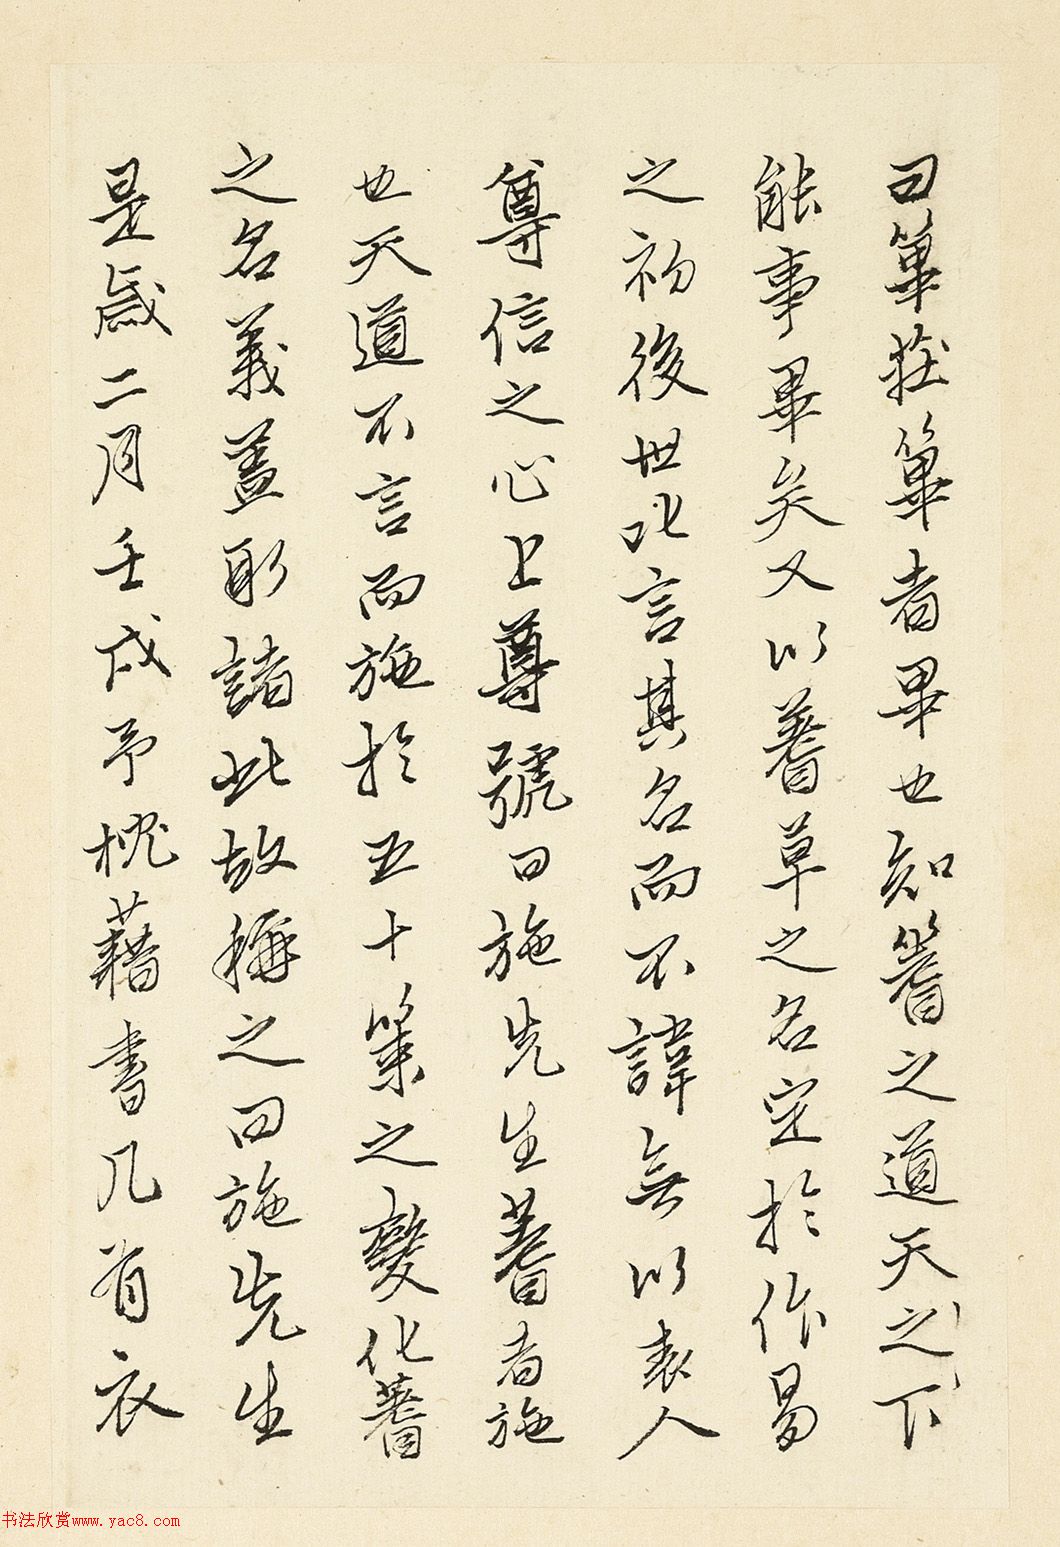 曰筮筮者畢也知蓍之道天之下
能事畢矣又以蓍草之名定於作易
之初後世以言其名而不諱無以表人
尊信之心上尊號曰施先生蓍者施
也天道不言而施於五十策之變化蓍
之名義蓋取諸此故稱之曰施先生
是歲二月壬戌予枕藉書几有衣
书法欣赏www.yac8.com